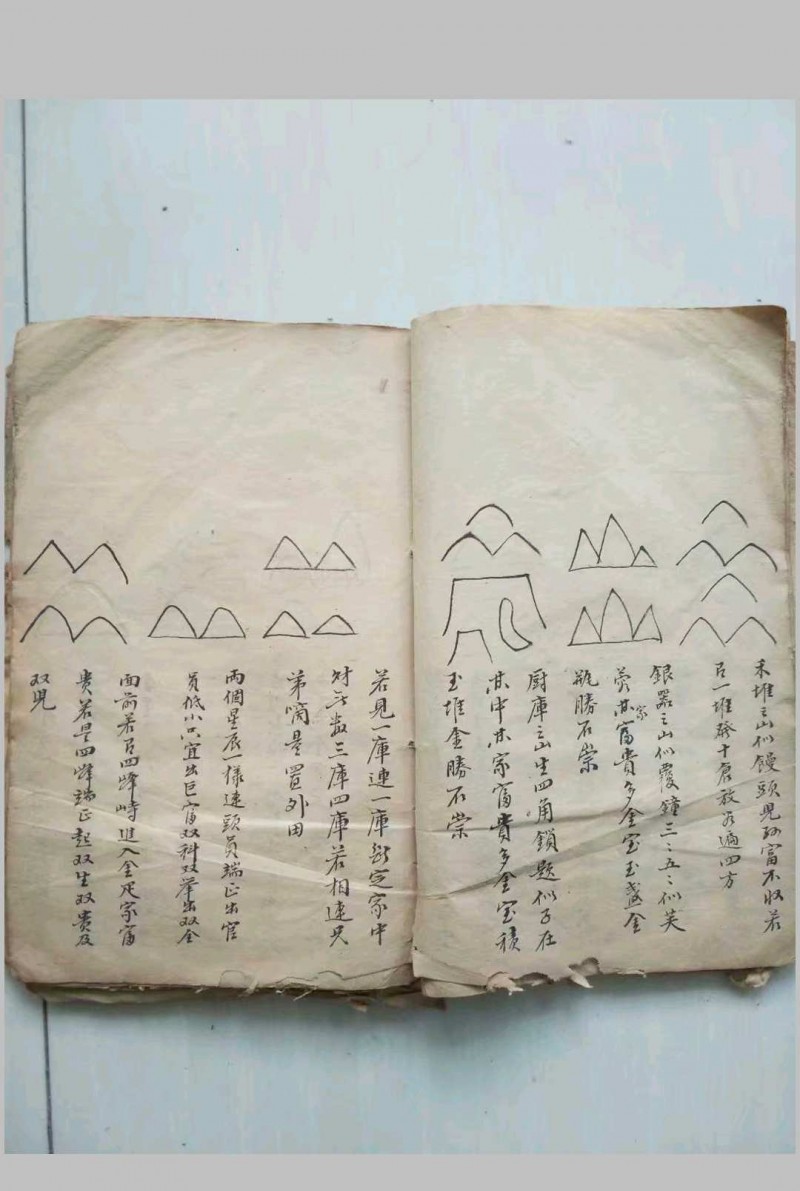 禾堆之山似饅頭兒孫富不收若
一堆發十倉放方遍四方
銀器之山似覆鐘三三五五似芙
蓉其家富貴多金宝玉盞金
瓶勝石崇
厨庫之山生四角鎖匙似子在
其中其家富貴多金宝積
玉堆金勝石崇
若見一庫連一庫断定家中
財無数三庫四庫若相連兄
弟商量置外田
兩個星辰一樣連頭員端正出官
員低小只宜出巨富双科双舉出双全
面前若四峰峙進入金足家富
貴若是四峰端正起双生双貴及
双兒